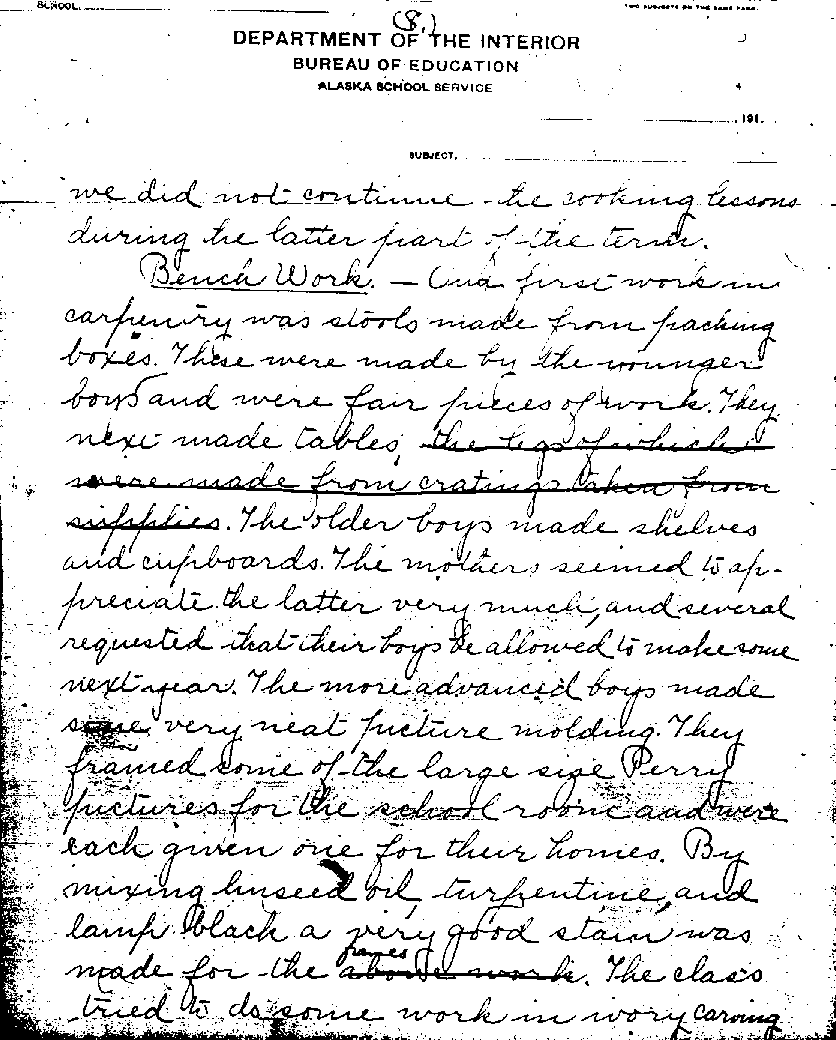 SCHOOL.
TWO SUBJECTS ON THE SAME PAGE.
(8.)
DEPARTMENT OF THE INTERIOR
BUREAU OF EDUCATION
ALASKA SCHOOL SERVICE
191
SUBJECT,
we did not continue the cooking lessons
during the latter part of the term.
Bench Work. — Our first work in
carpentry was stools made from packing
boxes. These were made by the younger
boys and were fair pieces of work. They
next made tables, the legs of which
were made from cratings taken from
supplies. The older boys made shelves
and cupboards. The mothers seemed to ap-
preciate the latter very much, and several
requested that their boys be allowed to make some
next year. The more advanced boys made
some very neat picture molding. They
framed some of the large size Perry
pictures for the school room and were
each given one for their homes. By
mixing linseed oil, turpentine, and
lamp black a very good stain was
frames
made for the above work. The class
tried to do some work in ivory carving